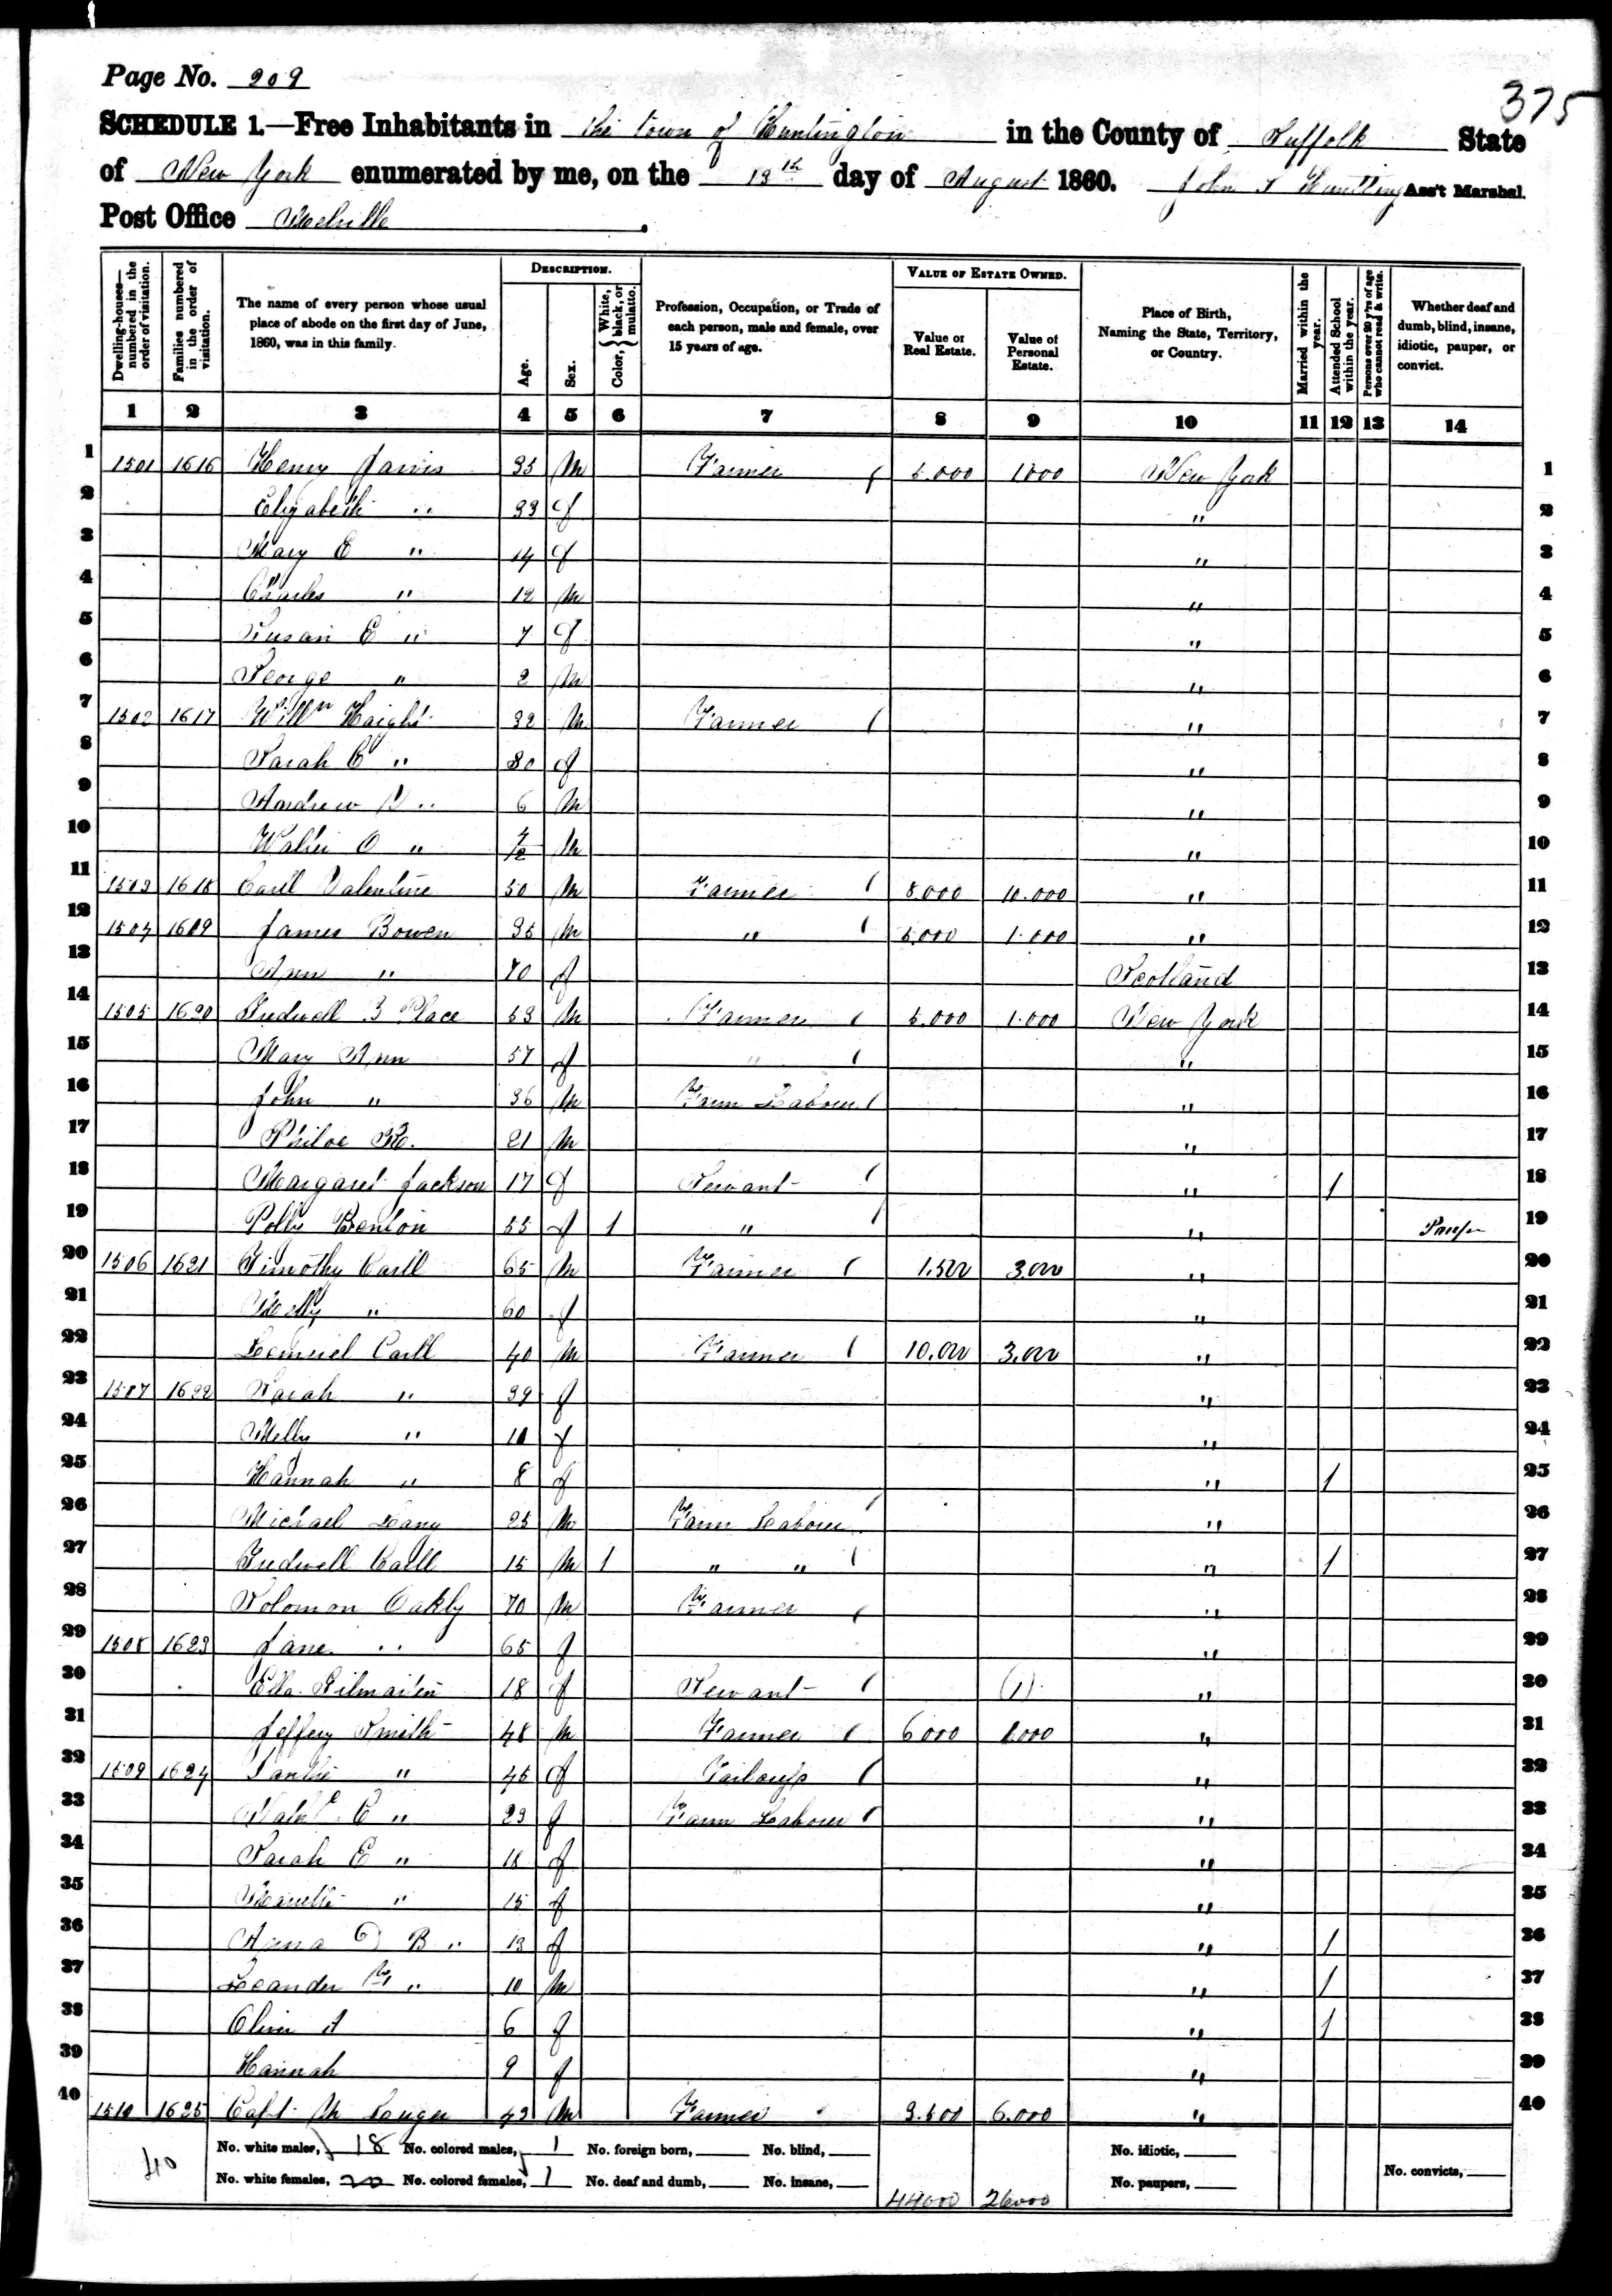 Page No. 209
375
SCHEDULE 1.—Free Inhabitants in the town of Huntington in the County of Suffolk State
of New York enumerated by me, on the 13th day of August 1860. John S Huntting Ass't Marshal.
Post Office Melville
Dwelling-houses— numbered in the order of visitation. Families numbered in the order of visitation. The name of every person whose usual place of abode on the first day of June, 1860, was in this family. DESCRIPTION. Age. Sex. Color, { White, black, or mulatto. Profession, Occupation, or Trade of each person, male and female, over 15 years of age. VALUE OF ESTATE OWNED. Value of Real Estate. Value of Personal Estate. Place of Birth, Naming the State, Territory, or Country. Married within the year. Attended School within the year. Persons over 20 y'rs of age who cannot read & write. Whether deaf and dumb, blind, insane, idiotic, pauper, or convict.
1 2 3 4 5 6 7 8 9 10 11 12 13 14
1 1501 1616 Henry Jarvis 35 M Farmer 5.000 1000 New York 1
2 Elizabeth " 33 f " 2
3 Mary E " 14 f " 3
4 Charles " 12 M " 4
5 Susan E " 7 f " 5
6 George " 2 M " 6
7 1502 1617 Willm Haight 32 M Farmer " 7
8 Sarah C " 30 f " 8
9 Andrew " 6 M " 9
10 Walter O " M " 10
11 1503 1618 Carll Valentine 50 M Farmer 8.000 10.000 " 11
12 1504 1619 James Bowen 35 M " 5.000 1.000 " 12
13 Ann " 70 f Scotland 13
14 1505 1620 Tredwell B Place 53 M Farmer 5.000 1.000 New York 14
15 Mary Ann 57 f " " 15
16 John " 36 M Farm Labour " 16
17 21 M " 17
18 Margaret Jackson 17 f Servant " 1 18
19 Polly Benton 55 f 1 " " Pauper 19
20 1506 1621 Timothy Carll 65 M Farmer 1.500 3.000 " 20
21 " 60 f " 21
22 Lemuel Carll 40 M Farmer 10.000 3.000 " 22
23 1507 1622 Sarah " 39 f " 23
24 " 11 f " 24
25 Hannah " 8 f " 1 25
26 Michael 25 M Farm Labour " 26
27 Tredwell Carll 15 M 1 " " " 1 27
28 Solomon Oakly 70 M Farmer " 28
29 1508 1623 Jane " 65 f " 29
30 Ella 18 f Servant (1) " 30
31 Jeffery Smith 48 M Farmer 6000 1.000 " 31
32 1509 1624 " 45 f Tailoress " 32
33 E " 23 f Farm Labour " 33
34 Sarah E " 18 f " 34
35 " 15 f " 35
36 Anna D B " 13 f " 1 36
37 Leander " 10 M " 1 37
38 Oliver A 6 f " 1 38
39 Hannah 9 f " 39
40 1510 1625 Capt. M 43 M Farmer 3.500 6.000 " 40
40 No. white males, 18 No. colored males, 1 No. foreign born, No. blind, No. idiotic,
No. white females, 20 No. colored females, 1 No. deaf and dumb, No. insane, No. paupers, No. convicts,
44000 26000